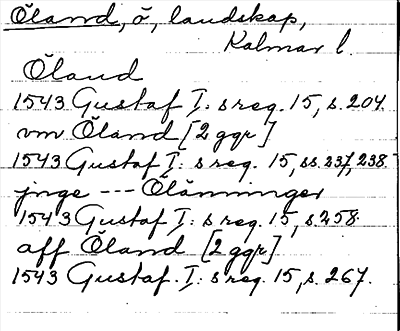 Öland, ö, landskap,
Kalmar l.
Öland
1543 Gustaf I:s reg. 15, s. 204.
vm Öland [2 ggr]
1543 Gustaf I:s reg. 15, ss. 237, 238.
jnge --- Ölänninger
1543 Gustaf I:s reg. 15, s. 258.
aff Öland [2 ggr]
1543 Gustaf. I:s reg. 15, s. 267.